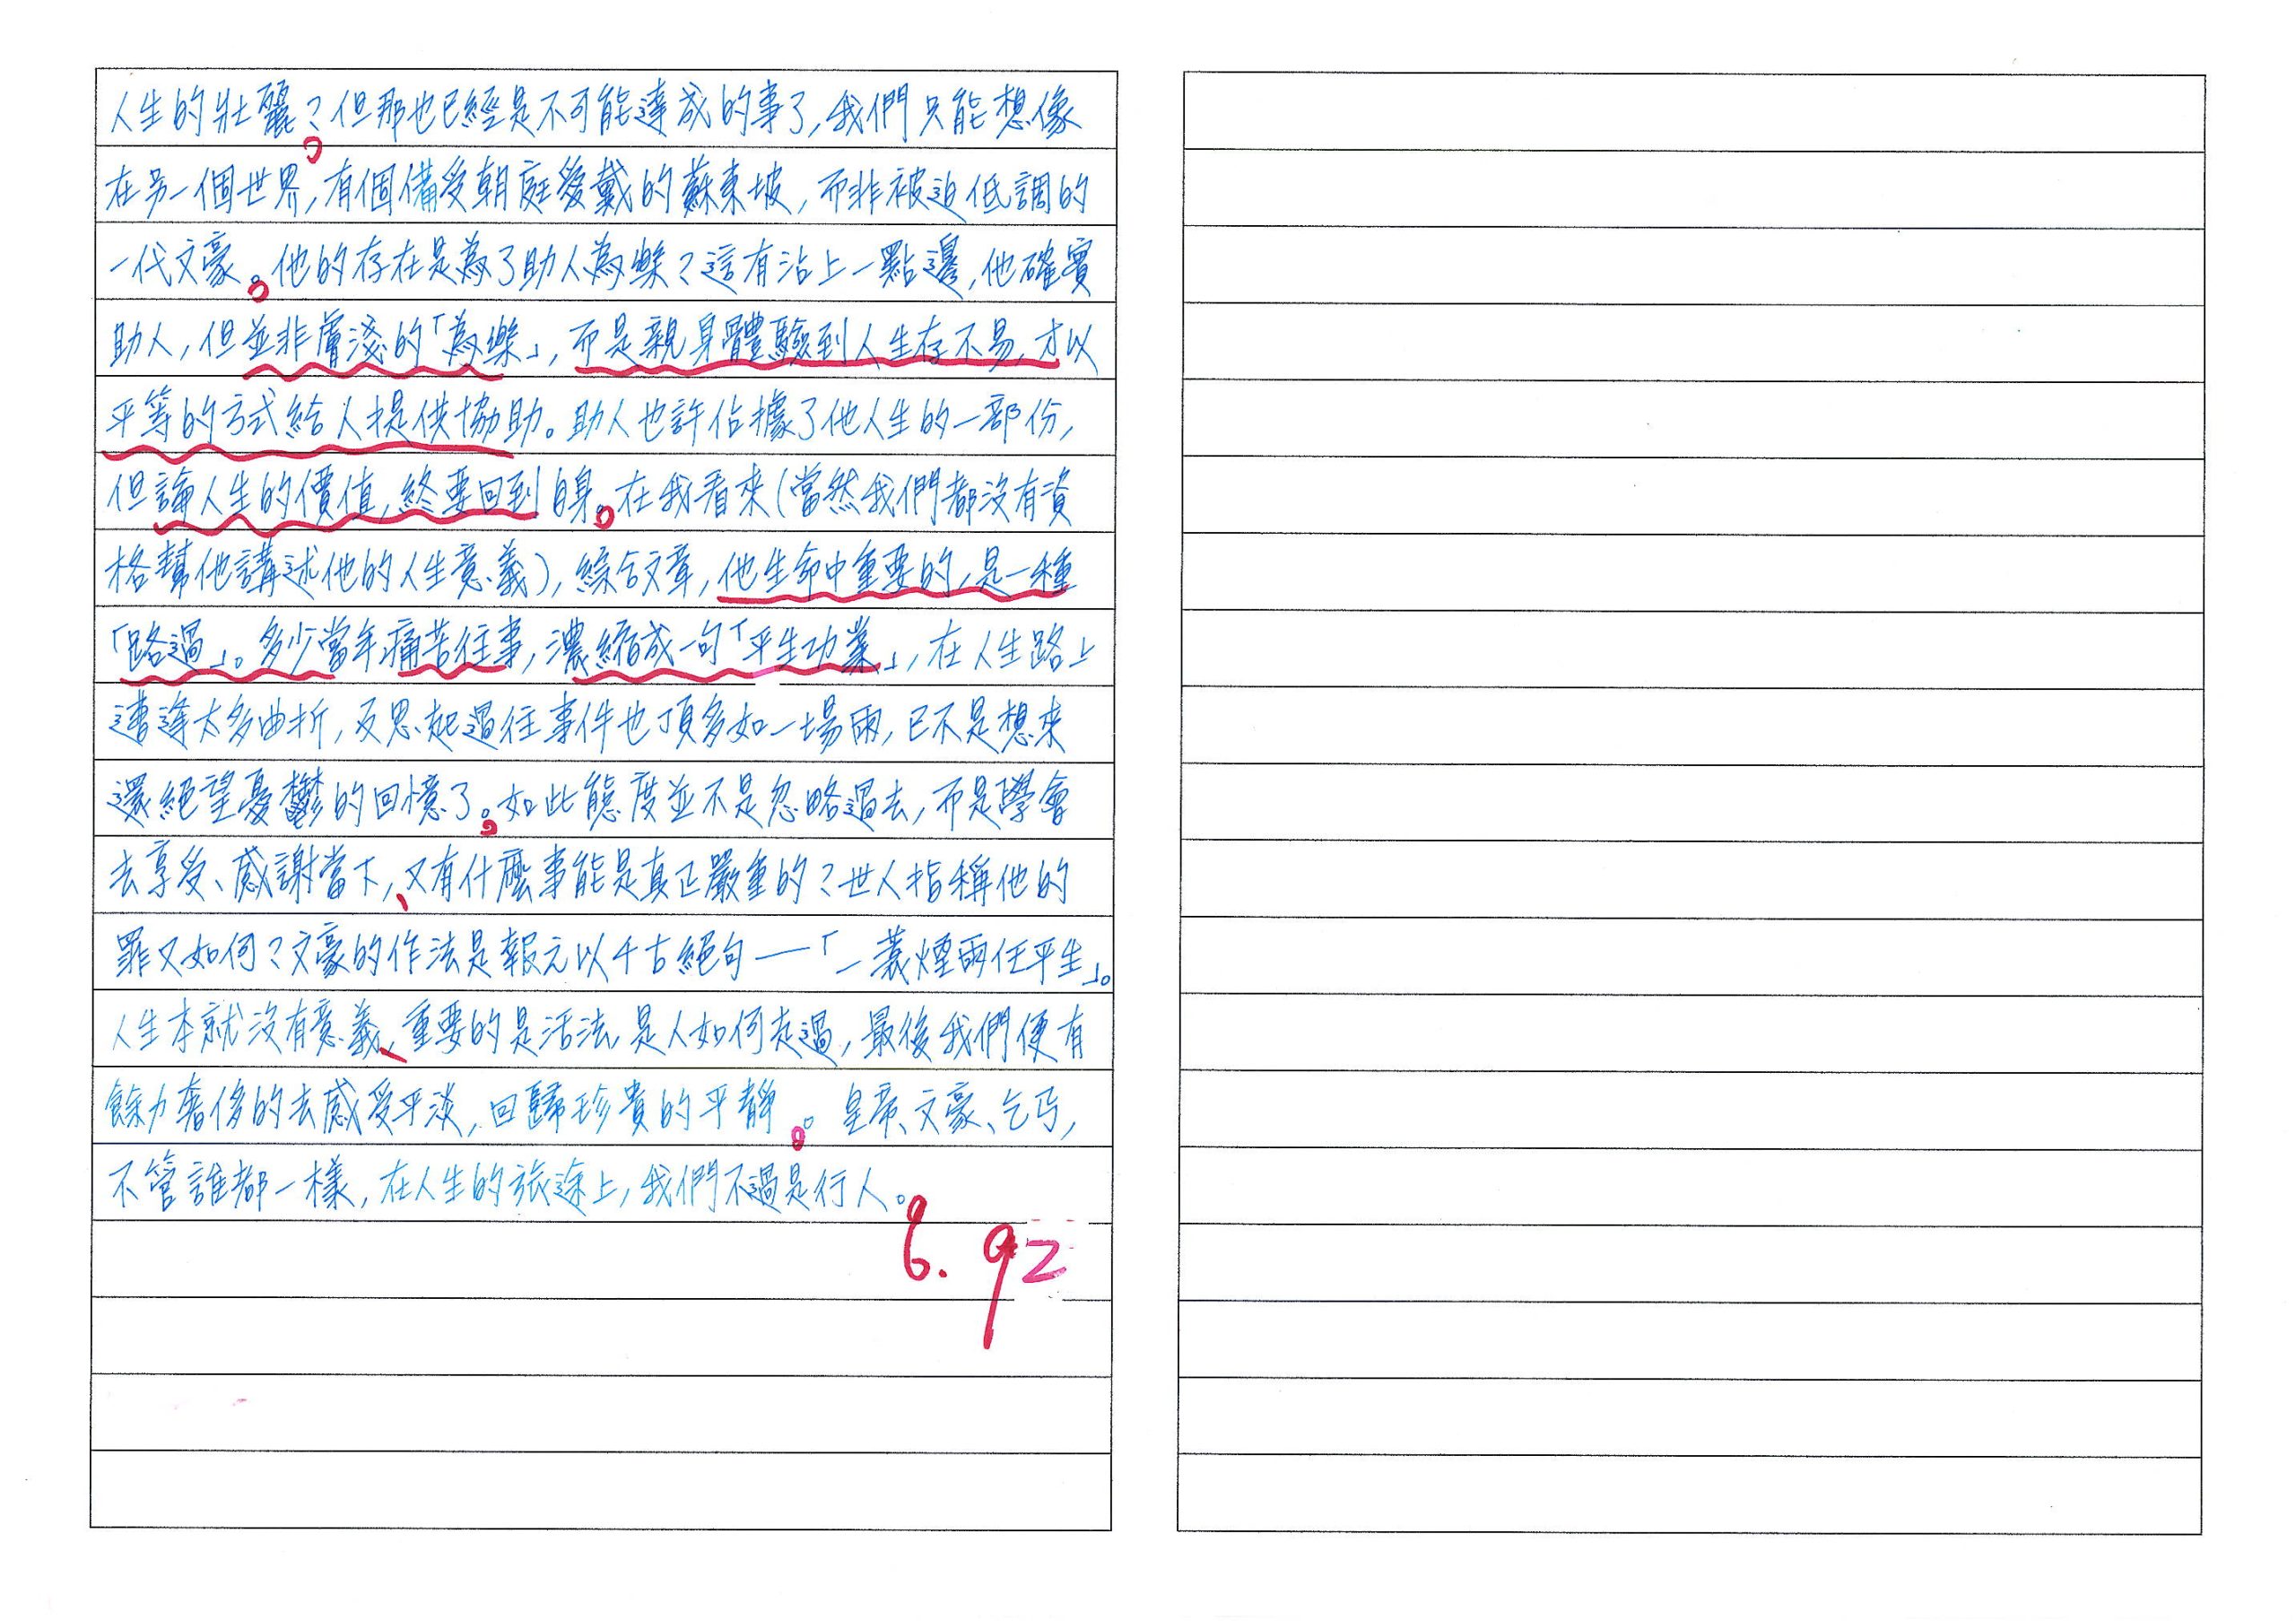 人生的壯麗？但那也已經是不可能達成的事了,我們只能想像
在另一個世界,有個備受朝庭愛戴的蘇東坡,而非被迫低調的
一代文豪。他的存在是為了助人為樂？這有沾上一點邊,他確實
助人,但並非膚淺的「為樂」,而是親身體驗到人生存不易,才以
平等的方式給人提供協助。助人也許佔據了他人生的一部份,
但論人生的價值,終要回到自身。在我看來(當然我們都沒有資
格幫他講述他的人生意義),綜合文章,他生命中重要的,是一種
「路過」。多少當年痛苦往事,濃縮成一句「平生功業」,在人生路上
遭逢太多曲折,反思起過往事件也頂多如一場雨,已不是想來
還絕望憂鬱的回憶了。如此態度並不是忽略過去,而是學會
去享受、感謝當下,又有什麼事能是真正嚴重的？世人指稱他的
罪又如何？文豪的作法是報元以千古絕句—「一蓑煙雨任平生」。
人生本就沒有意義,重要的是活法,是人如何走過,最後我們便有
餘力奢侈的去感受平淡,回歸珍貴的平靜。皇帝、文豪、乞丐,
不管誰都一樣,在人生的旅途上,我們不過是行人。
6. 92